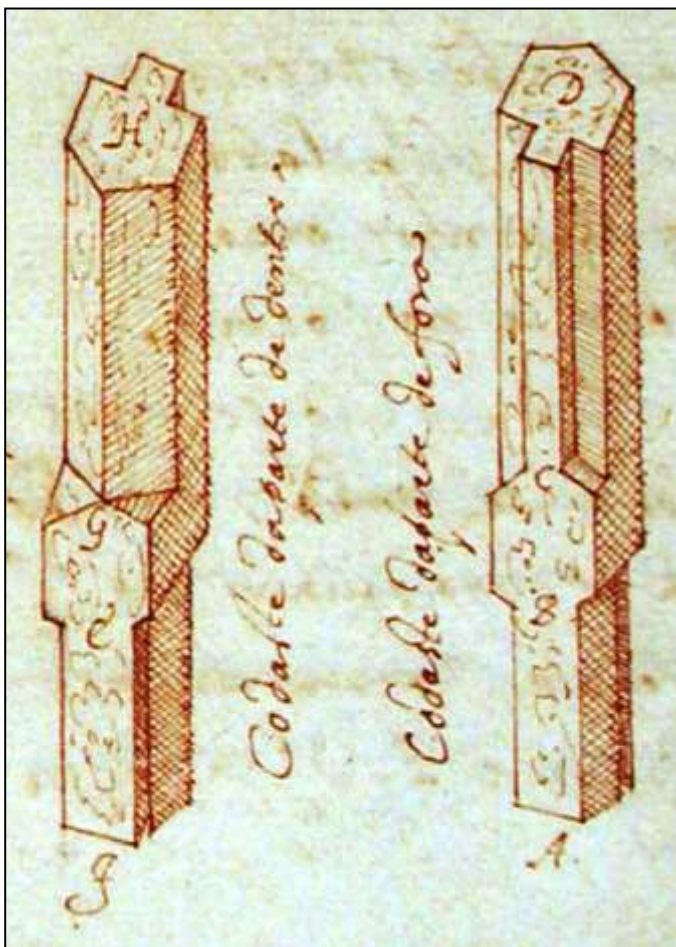 H
Codaste daparte de dentro
Codaste daparte de fora
B
A.